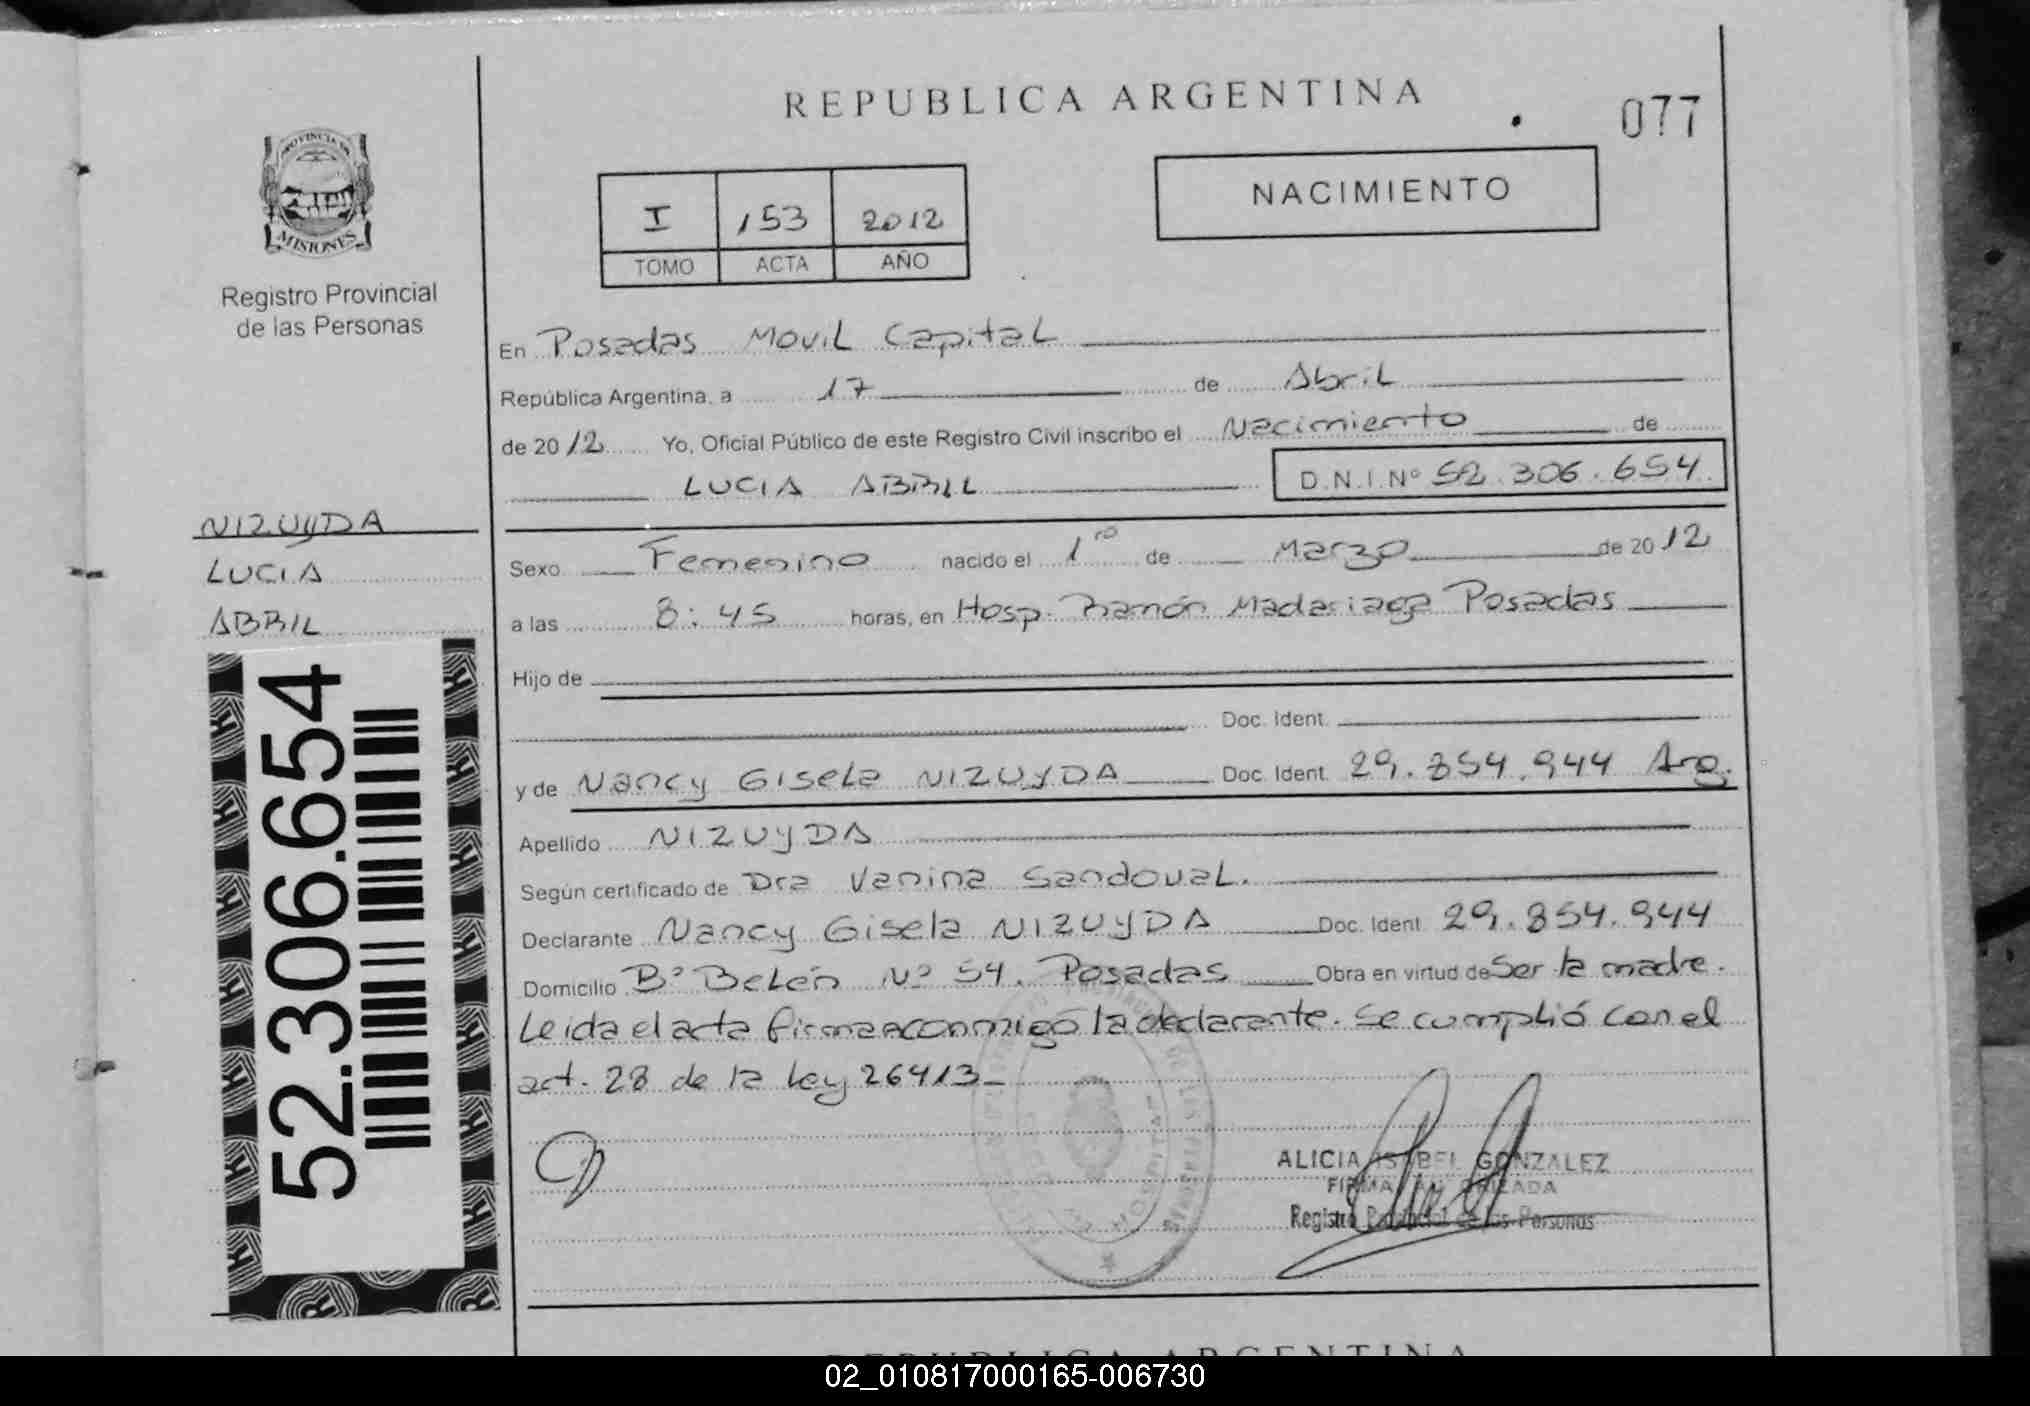 REPUBLICA ARGENTINA
077
PROVINCIA DE
MISIONES
Registro Provincial
de las Personas
I 153 2012
TOMO ACTA AÑO
NACIMIENTO
En Posadas Movil Capital
República Argentina, a 17 de Abril
de 2012 Yo, Oficial Público de este Registro Civil inscribo el Nacimiento de
LUCIA ABRIL D.N.I.Nº 52.306.654
NIZUYDA
LUCIA
ABRIL
52.306.654
Sexo Femenino nacido el 1ro de Marzo de 2012
a las 8:45 horas, en Hosp. Ramón Madariaga Posadas
Hijo de
Doc. Ident.
y de Nancy Gisela NIZUYDA Doc. Ident. 29.854.944 Arg.
Apellido NIZUYDA
Según certificado de Dra Vanina Sandoval.
Declarante Nancy Gisela NIZUYDA Doc. Ident. 29.854.944
Domicilio Bº Belén Nº 54. Posadas Obra en virtud de Ser la madre.
Leida el acta firma conmigo la declarante. Se cumplió con el
art. 28 de la Ley 26413
ALICIA ISABEL GONZALEZ
FIRMA AUTORIZADA
Registro Provincial de las Personas
REPUBLICA ARGENTINA
02_010817000165-006730